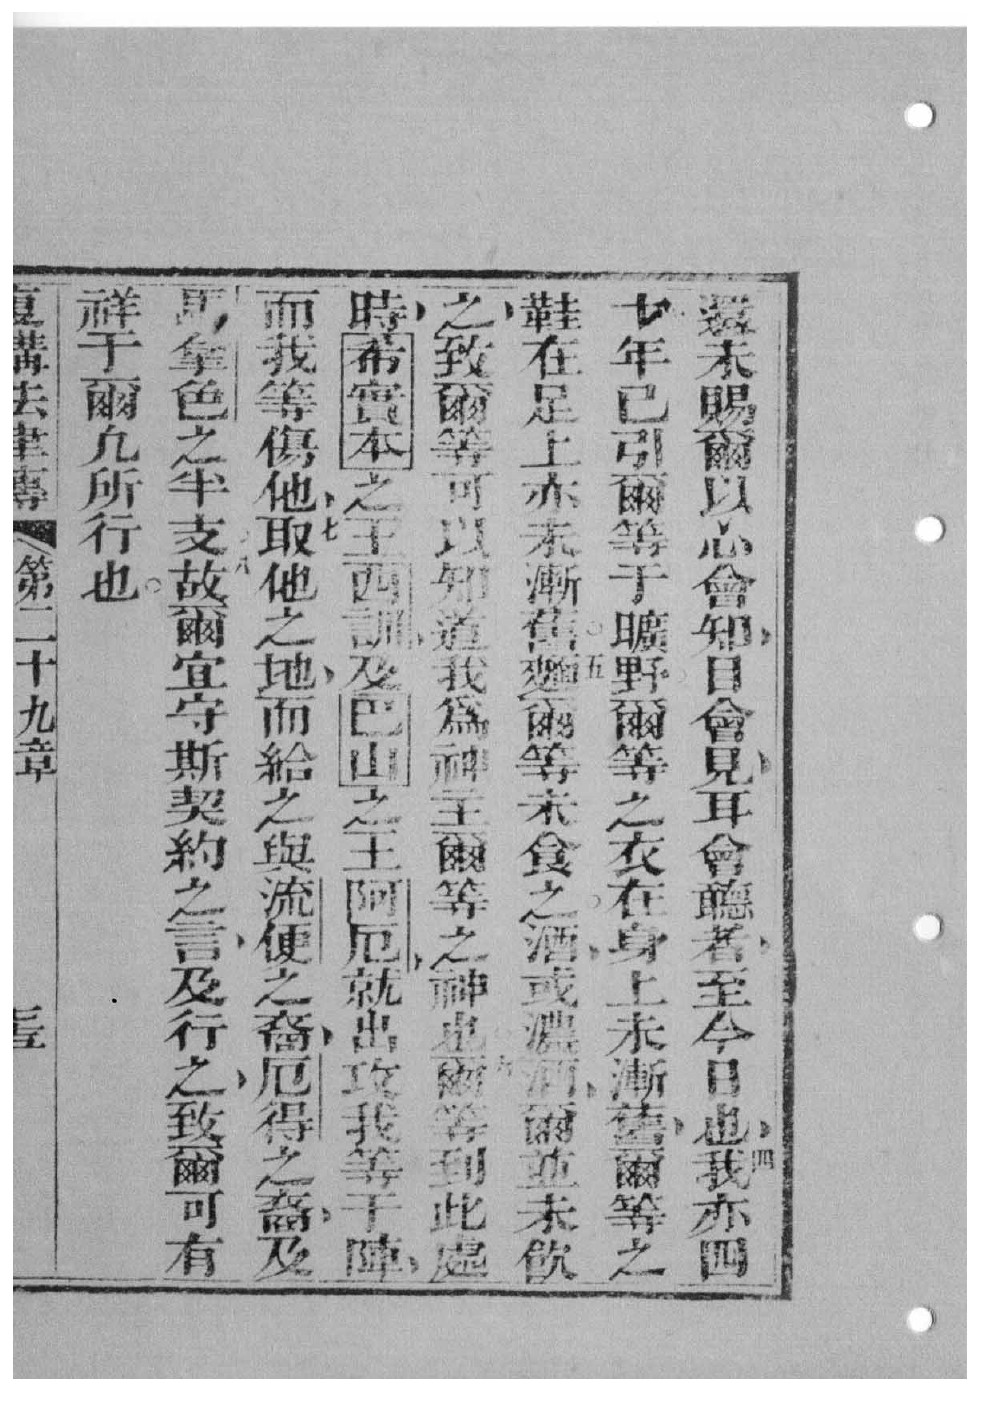 還未賜爾以心會知目會見耳會聽者至今日也四我亦四
十年已引爾等于曠野爾等之衣在身上未漸舊爾等之
鞋在足上亦未漸舊五麵爾等未食之酒或濃酒爾並未飲
之致爾等可以知道我為神主爾等之神也六爾等到此處
時希實本之王西訓及巴山之王阿厄就出攻我等于陣
而我等傷他七取他之地而給之與流便之裔厄得之裔及
馬拿色之半支八故爾宜守斯契約之言及行之致爾可有
祥于爾凢所行也
復講法律傳 第二十九章